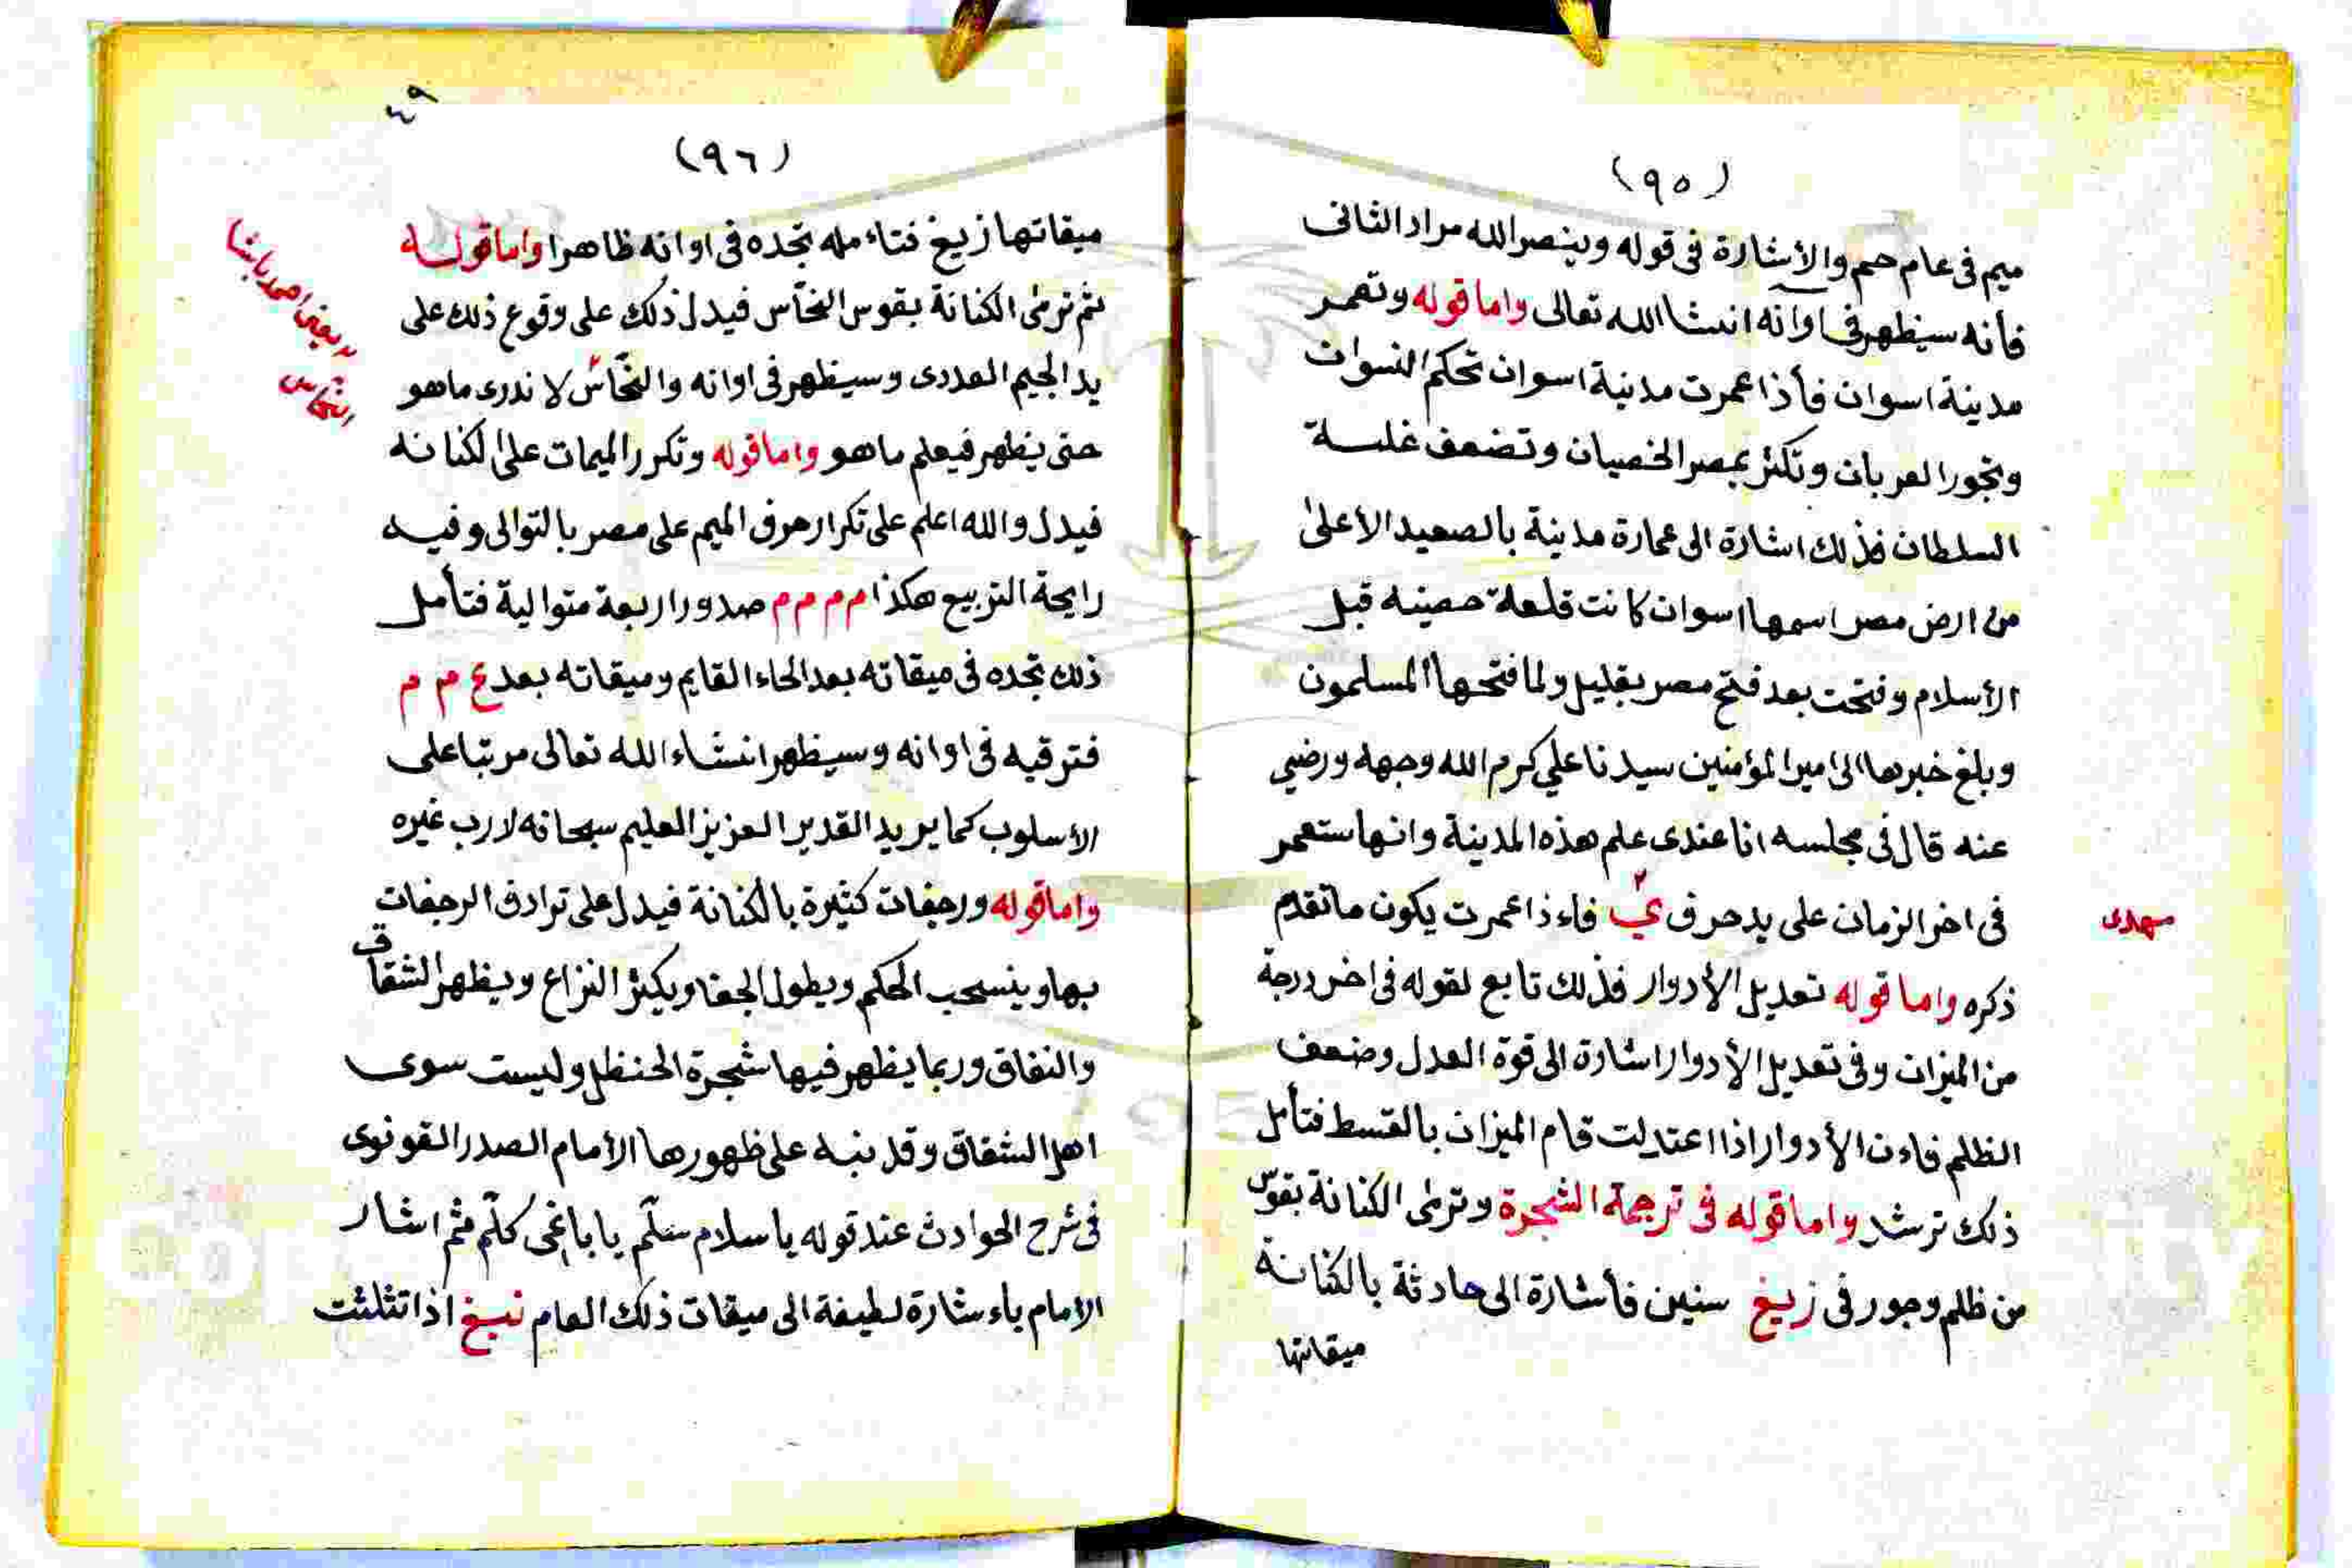 (٩٥)
ميم في عام حم والأشارة في قوله وينصر الله مراد الثاني
فأنه سيظهر في اوانه انشا الله تعالى واما قوله وتعمر
مدينة اسوان فأذا عمرت مدينة اسوان تحكم النسوان
وتجور العربان وتكثر بمصر الخصيان وتضعف غلسة
السلطان فذلك اشارة الى عمارة مدينة بالصعيد الأعلى
من ارض مصر اسمها اسوان كانت قلعة حصينه قبل
الأسلام وفتحت بعد فتح مصر بقليل ولما فتحها المسلمون
وبلغ خبرها الى امير المؤمنين سيدنا علي كرم الله وجهه ورضي
عنه قال في مجلسه انا عندى علم هذه المدينة وانها ستعمر
في اخر الزمان على يد حرف ي فاءذا عمرت يكون ما تقدم
مهدى
ذكره واما قوله تعديل الأدوار فذلك تابع لقوله في اخر درجة
من الميزان وفي تعديل الأدوار اشارة الى قوة العدل وضعف
الظلم فاءن الأدوار اذا اعتدلت قام الميزان بالقسط فتأمل
ذلك ترشد واما قوله في ترجمة الشجرة وترمى الكنانة بقوس
من ظلم وجور في زيغ سنين فأشارة الى حادثة بالكنانة
ميقاتها
٤٩
(٩٦)
ميقاتها زيغ فتاءمله تجده في اوانه ظاهرا واما قوله
ثم ترمى الكنانة بقوس النخاس فيدل ذلك على وقوع ذلك على
يد الجيم العددى وسيظهر في اوانه والنخاس لا ندرى ما هو
يعني احمد باشا
النخاس
حتى يظهر فيعلم ما هو واما قوله وتكرر الميمات على الكنانه
فيدل والله اعلم على تكرار حرف الميم على مصر بالتوالى وفيه
رايحة التربيع هكذا م م م م صدورا ربعة متوالية فتأمل
ذلك تجده في ميقاته بعد الحاء القايم وميقاته بعد ع م م
فترقيه في اوانه وسيظهر انشاء الله تعالى مرتبا على
الأسلوب كما يريد القدير العزيز العليم سبحانه لا رب غيره
واما قوله ورجفات كثيرة بالكنانة فيدل على ترادف الرجفات
بها وينسحب الحكم ويطول الجفا ويكثر النزاع ويظهر الشقاق
والنفاق وربما يظهر فيها شجرة الحنظل وليست سوى
اهل الشقاق وقد نبه على ظهورها الأمام الصدر القونوى
في شرح الحوادث عند قوله يا سلام سلم يا باغى كلم ثم اشار
الأمام باءشارة لطيفة الى ميقات ذلك العام نبغ اذا تثلثت